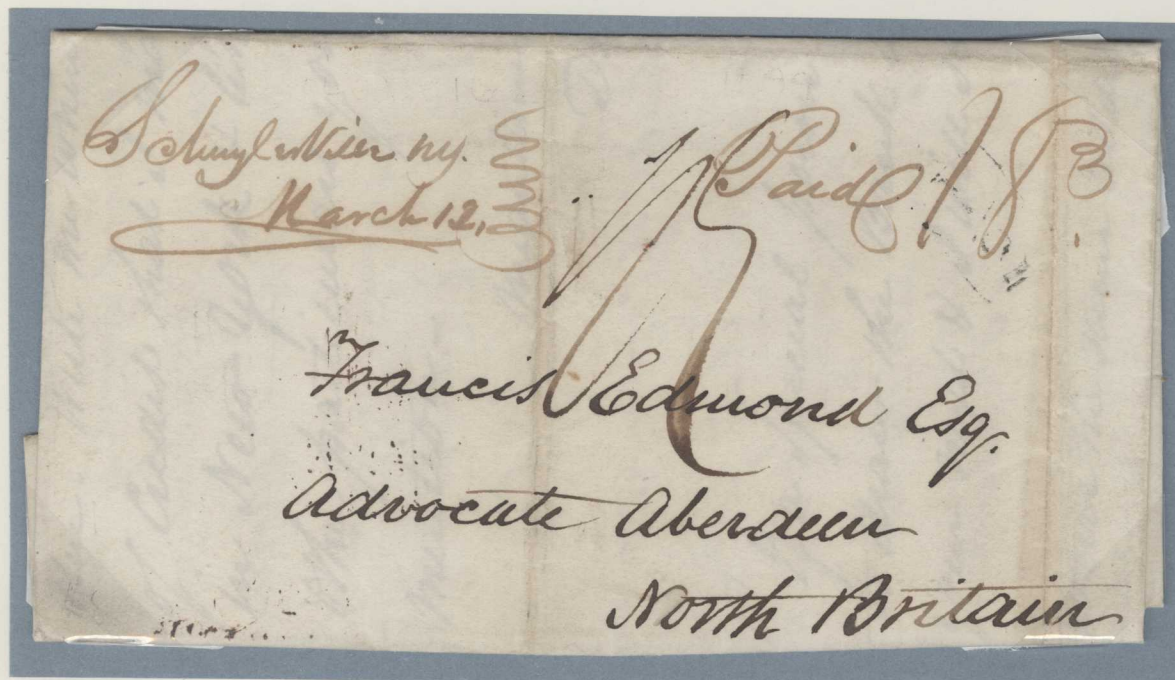 Schuylerville N.Y.
March 12,
Paid 18 3
Francis Edmond Esq.
Advocate Aberdeen
North Britain